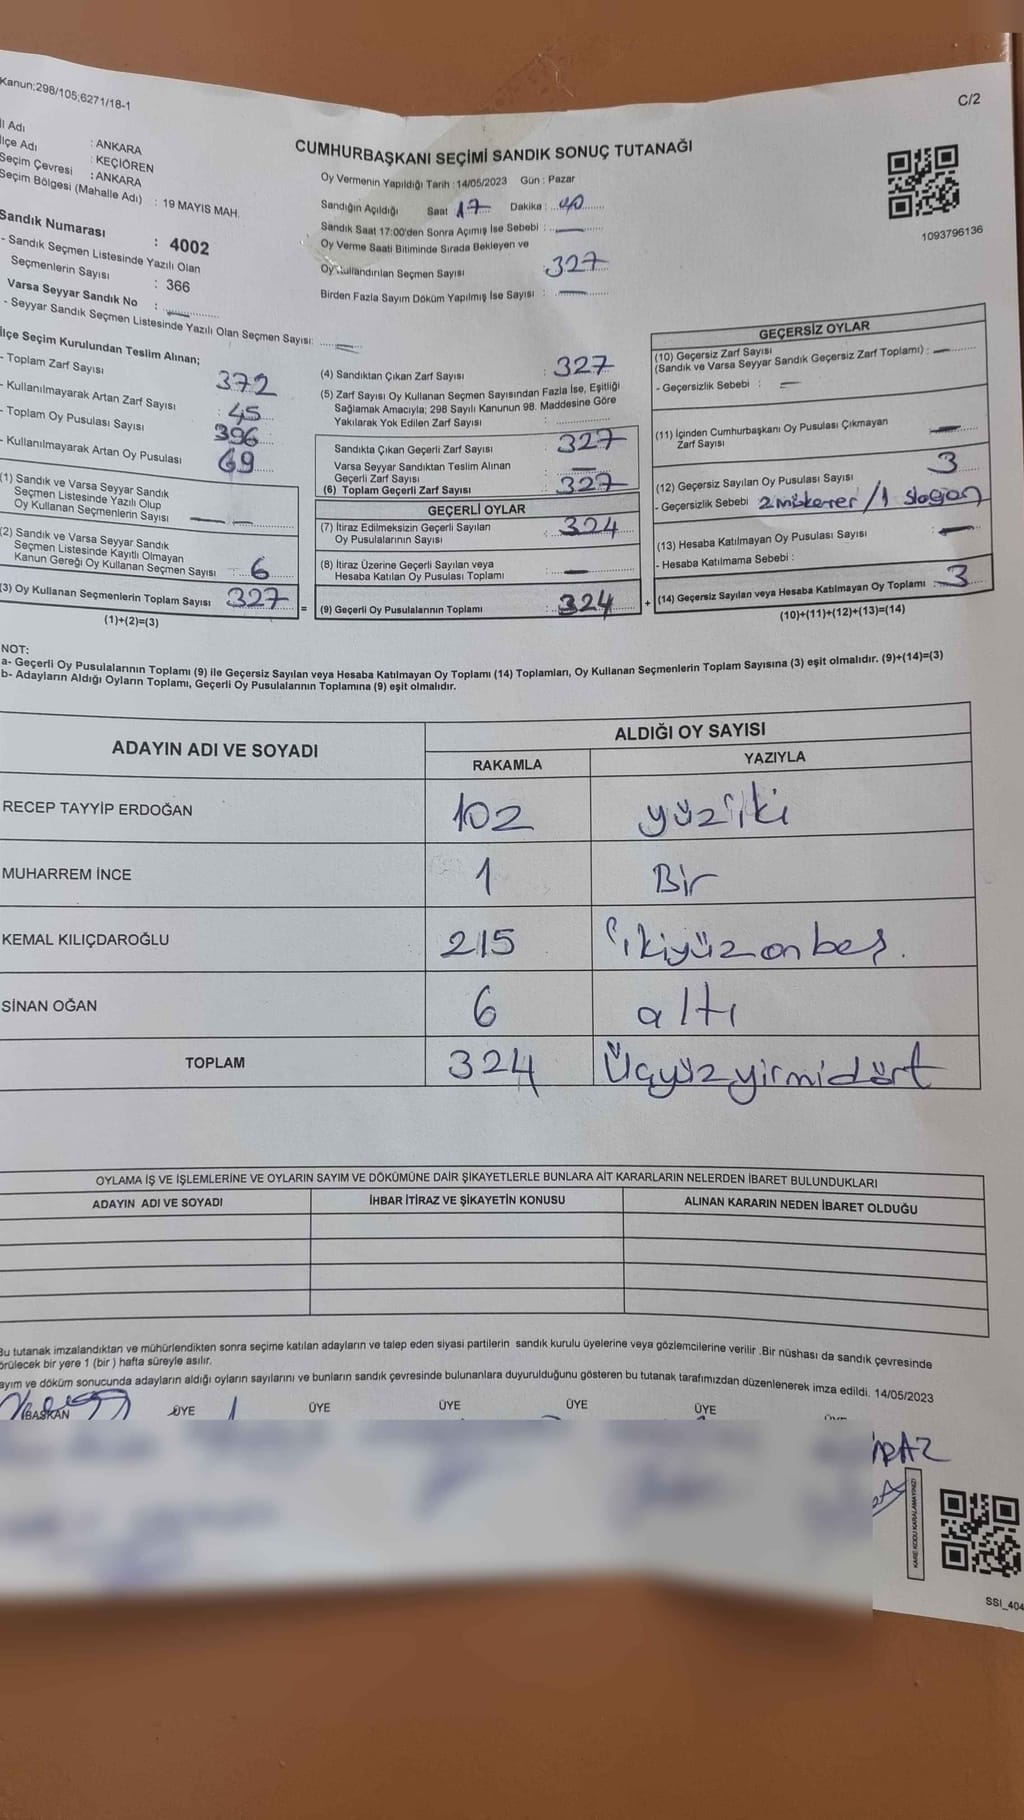 Kanun;298/105;6271/18-1
C/2
İl Adı : ANKARA
İlçe Adı : KEÇİÖREN
Seçim Çevresi : ANKARA
Seçim Bölgesi (Mahalle Adı) : 19 MAYIS MAH.
Sandık Numarası : 4002
- Sandık Seçmen Listesinde Yazılı Olan
Seçmenlerin Sayısı : 366
Varsa Seyyar Sandık No :
- Seyyar Sandık Seçmen Listesinde Yazılı Olan Seçmen Sayısı:
CUMHURBAŞKANI SEÇİMİ SANDIK SONUÇ TUTANAĞI
Oy Vermenin Yapıldığı Tarih : 14/05/2023 Gün : Pazar
Sandığın Açıldığı Saat 17 Dakika : 40
Sandık Saat 17:00'den Sonra Açımış İse Sebebi : —
Oy Verme Saati Bitiminde Sırada Bekleyen ve
Oy Kullandırılan Seçmen Sayısı 327
Birden Fazla Sayım Döküm Yapılmış İse Sayısı : —
1093796136
İlçe Seçim Kurulundan Teslim Alınan;
- Toplam Zarf Sayısı 372
- Kullanılmayarak Artan Zarf Sayısı : 45
- Toplam Oy Pusulası Sayısı 396
- Kullanılmayarak Artan Oy Pusulası 69
(1) Sandık ve Varsa Seyyar Sandık
Seçmen Listesinde Yazılı Olup
Oy Kullanan Seçmenlerin Sayısı — —
(2) Sandık ve Varsa Seyyar Sandık
Seçmen Listesinde Kayıtlı Olmayan
Kanun Gereği Oy Kullanan Seçmen Sayısı 6
(3) Oy Kullanan Seçmenlerin Toplam Sayısı 327
(1)+(2)=(3)
=
(4) Sandıktan Çıkan Zarf Sayısı : 327
(5) Zarf Sayısı Oy Kullanan Seçmen Sayısından Fazla İse, Eşitliği
Sağlamak Amacıyla; 298 Sayılı Kanunun 98. Maddesine Göre
Yakılarak Yok Edilen Zarf Sayısı :
Sandıkta Çıkan Geçerli Zarf Sayısı : 327
Varsa Seyyar Sandıktan Teslim Alınan
Geçerli Zarf Sayısı : —
(6) Toplam Geçerli Zarf Sayısı : 327
GEÇERLİ OYLAR
(7) İtiraz Edilmeksizin Geçerli Sayılan
Oy Pusulalarının Sayısı : 324
(8) İtiraz Üzerine Geçerli Sayılan veya
Hesaba Katılan Oy Pusulası Toplamı : —
(9) Geçerli Oy Pusulalarının Toplamı : 324
+
GEÇERSİZ OYLAR
(10) Geçersiz Zarf Sayısı
(Sandık ve Varsa Seyyar Sandık Geçersiz Zarf Toplamı) : —
- Geçersizlik Sebebi : —
(11) İçinden Cumhurbaşkanı Oy Pusulası Çıkmayan
Zarf Sayısı —
(12) Geçersiz Sayılan Oy Pusulası Sayısı 3
- Geçersizlik Sebebi 2 mükerer / 1 slogan
(13) Hesaba Katılmayan Oy Pusulası Sayısı —
- Hesaba Katılmama Sebebi :
(14) Geçersiz Sayılan veya Hesaba Katılmayan Oy Toplamı : 3
(10)+(11)+(12)+(13)=(14)
NOT:
a- Geçerli Oy Pusulalarının Toplamı (9) ile Geçersiz Sayılan veya Hesaba Katılmayan Oy Toplamı (14) Toplamları, Oy Kullanan Seçmenlerin Toplam Sayısına (3) eşit olmalıdır. (9)+(14)=(3)
b- Adayların Aldığı Oyların Toplamı, Geçerli Oy Pusulalarının Toplamına (9) eşit olmalıdır.
ADAYIN ADI VE SOYADI ALDIĞI OY SAYISI
RAKAMLA YAZIYLA
RECEP TAYYİP ERDOĞAN 102 yüziki
MUHARREM İNCE 1 Bir
KEMAL KILIÇDAROĞLU 215 ikiyüzonbeş.
SİNAN OĞAN 6 altı
TOPLAM 324 Üçyüzyirmidört
OYLAMA İŞ VE İŞLEMLERİNE VE OYLARIN SAYIM VE DÖKÜMÜNE DAİR ŞİKAYETLERLE BUNLARA AİT KARARLARIN NELERDEN İBARET BULUNDUKLARI
ADAYIN ADI VE SOYADI İHBAR İTİRAZ VE ŞİKAYETİN KONUSU ALINAN KARARIN NEDEN İBARET OLDUĞU
Bu tutanak imzalandıktan ve mühürlendikten sonra seçime katılan adayların ve talep eden siyasi partilerin sandık kurulu üyelerine veya gözlemcilerine verilir .Bir nüshası da sandık çevresinde
görülecek bir yere 1 (bir ) hafta süreyle asılır.
Sayım ve döküm sonucunda adayların aldığı oyların sayılarını ve bunların sandık çevresinde bulunanlara duyurulduğunu gösteren bu tutanak tarafımızdan düzenlenerek imza edildi. 14/05/2023
BAŞKAN ÜYE ÜYE ÜYE ÜYE ÜYE
KARE KODU KARALAMAYINIZ!
SSI_404